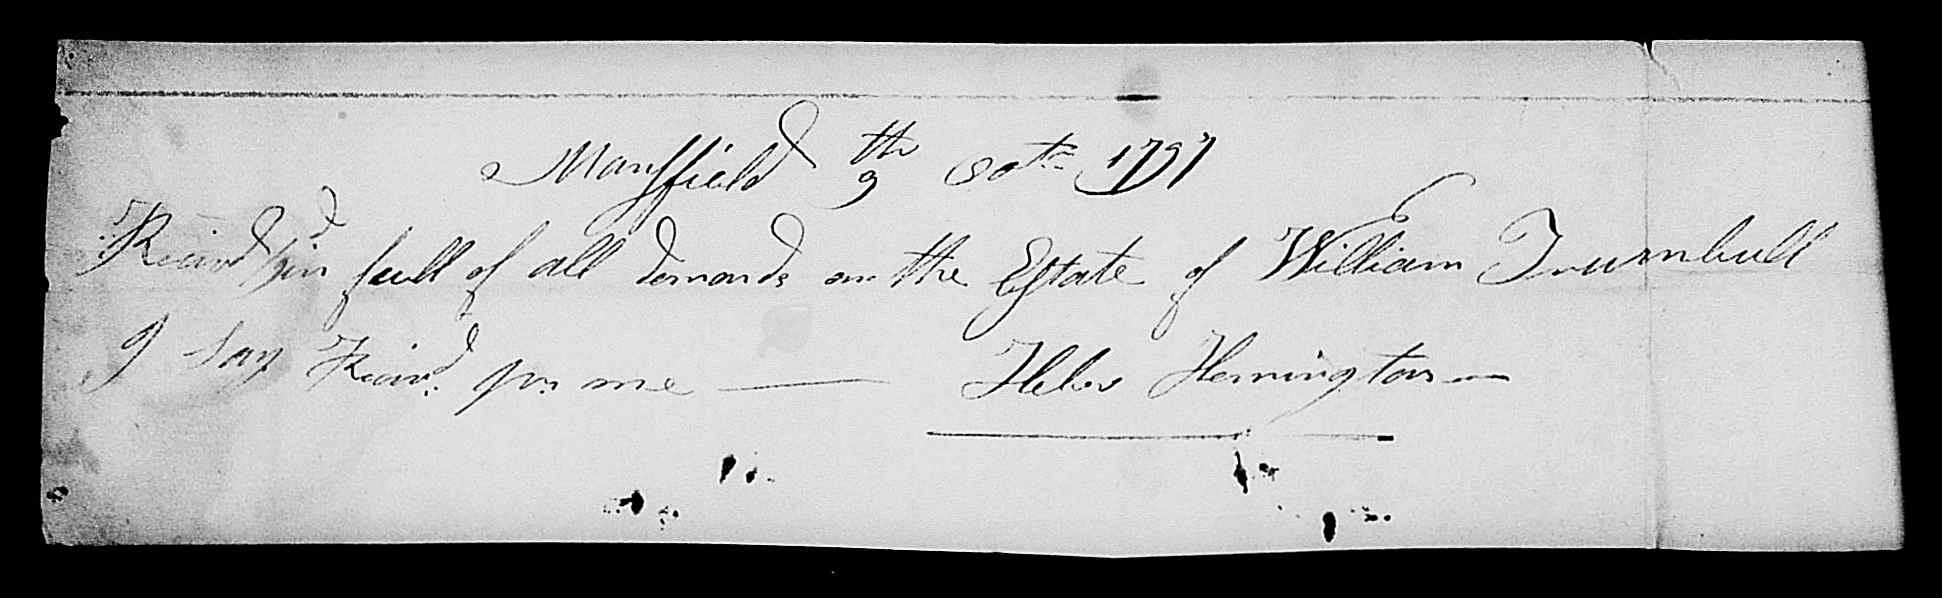 Mansfield 9th Octr 1797
Receivd in full of all demands on the Estate of William Trumbull
I say Receivd. pr me — Heber Herrington —